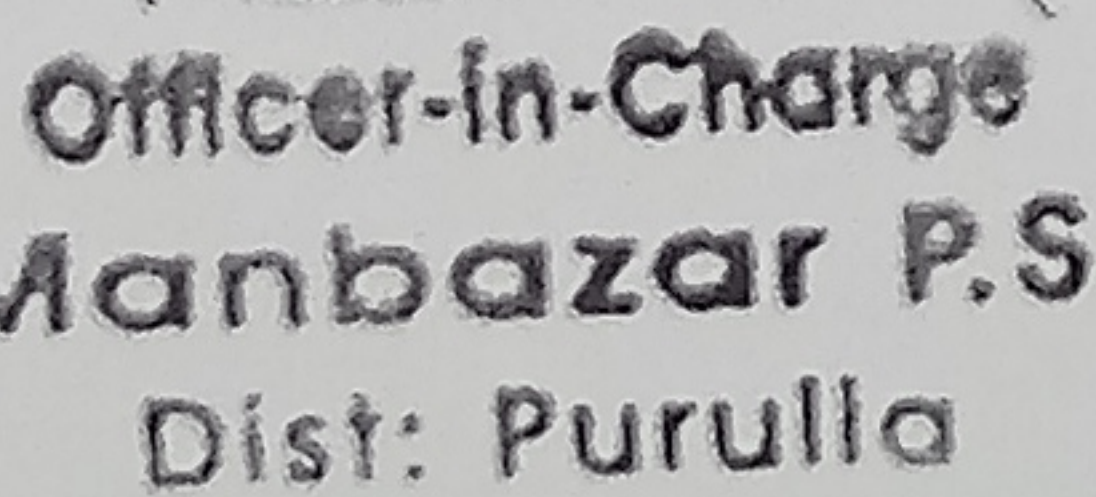 Officer-in-Charge
Manbazar P.S
Dist: Purulla